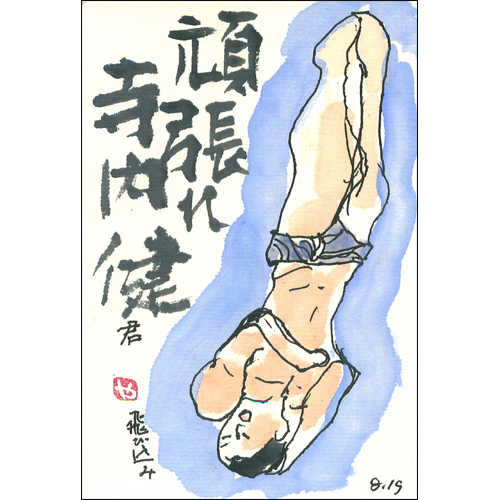 頑張れ
寺内健
君
飛び込み
8.19